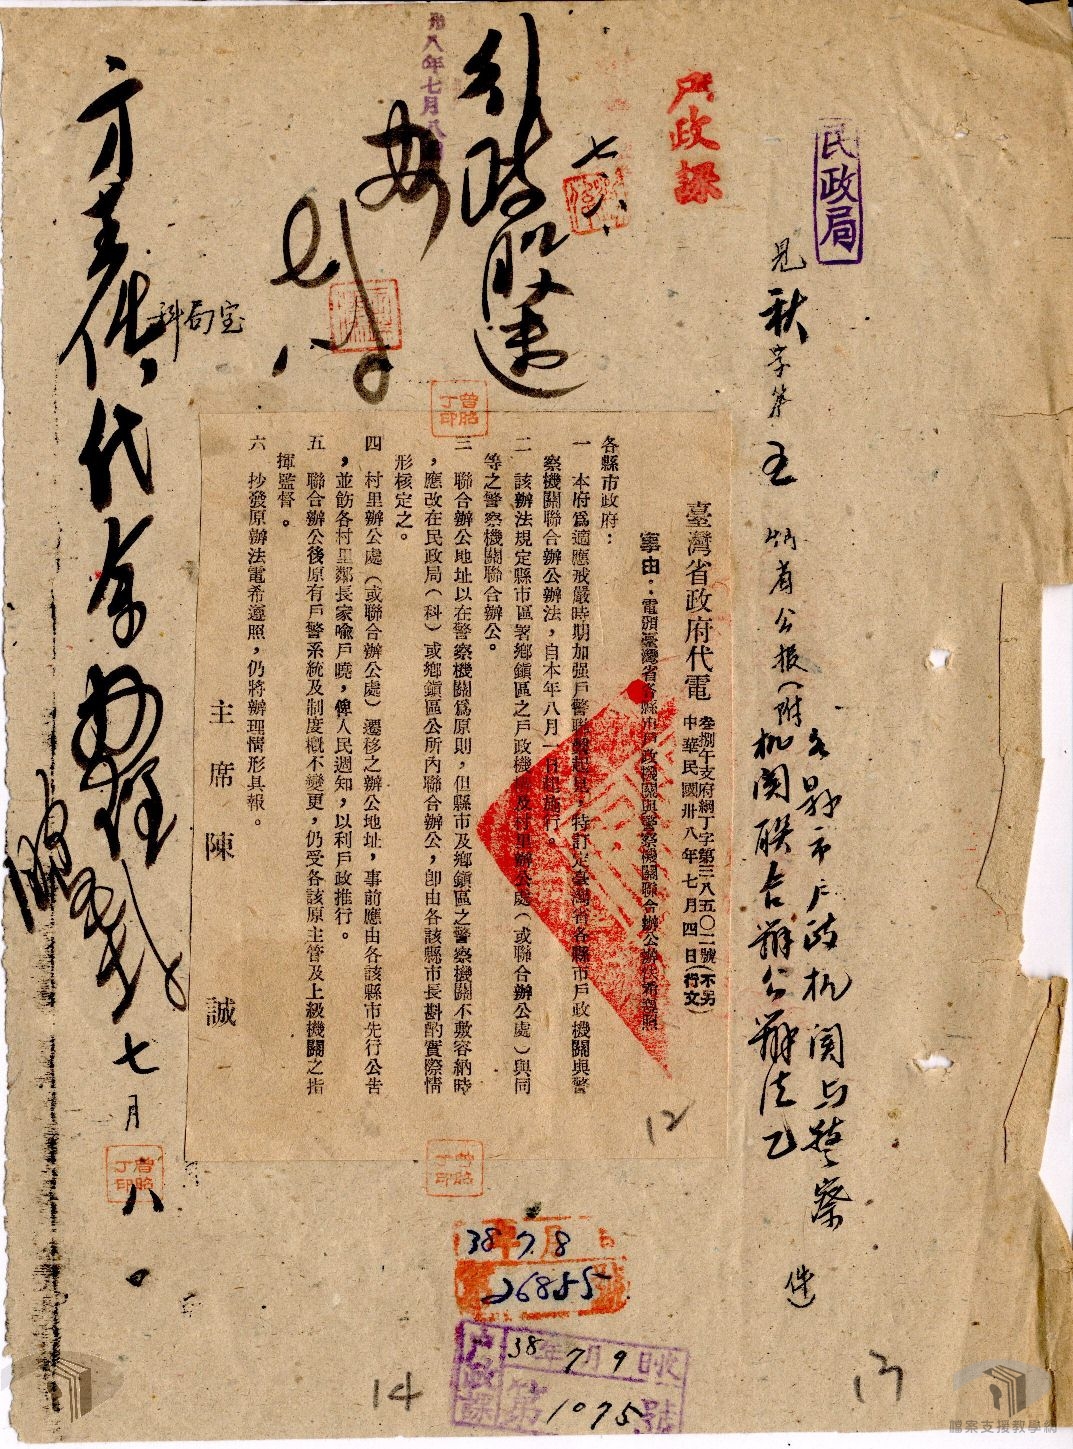 民政局
戶政課
見秋字第五期省公报(附
各縣市戶政机関与警察
机関联合辦公辦法乙
件
七
八
科局室
代電
七月八
臺灣省政府代電
叁捌午支府綱丁字第三八五〇二號(不另
中華民國卅八年七月四日行文)
事由:電頒臺灣省各縣市戶政機關與警察機關聯合辦公辦法希遵照
各縣市政府:
一 本府爲適應戒嚴時期加强戶警聯繫起見,特訂定臺灣省各縣市戶政機關與警
察機關聯合辦公辦法,自本年八月一日起施行。
二 該辦法規定縣市區署鄉鎮區之戶政機關及村里辦公處(或聯合辦公處)與同
等之警察機關聯合辦公。
三 聯合辦公地址以在警察機關爲原則,但縣市及鄉鎮區之警察機關不敷容納時
,應改在民政局(科)或鄉鎮區公所內聯合辦公,卽由各該縣市長斟酌實際情
形核定之。
四 村里辦公處(或聯合辦公處)遷移之辦公地址,事前應由各該縣市先行公告
,並飭各村里鄰長家喩戶曉,俾人民週知,以利戶政推行。
五 聯合辦公後原有戶警系統及制度概不變更,仍受各該原主管及上級機關之指
揮監督。
六 抄發原辦法電希遵照,仍將辦理情形具報。
主席 陳 誠
12
38 7 8
26855
戶政課
38年7月9日收
第1075號
14
13
檔案支援教學網